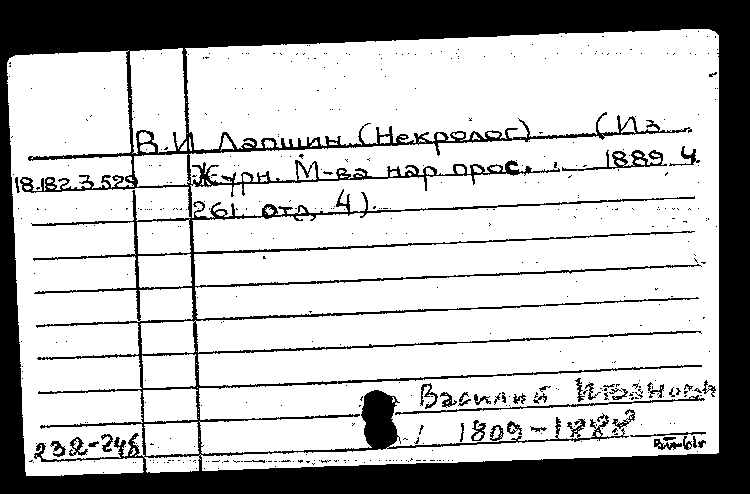 В.И. Лапшин (Некролог) (Из
18.182.3.529 Журн. М-ва нар. прос., 1889 ч.
261. отд. 4).
Василий Иванович
1809-1888
232-246